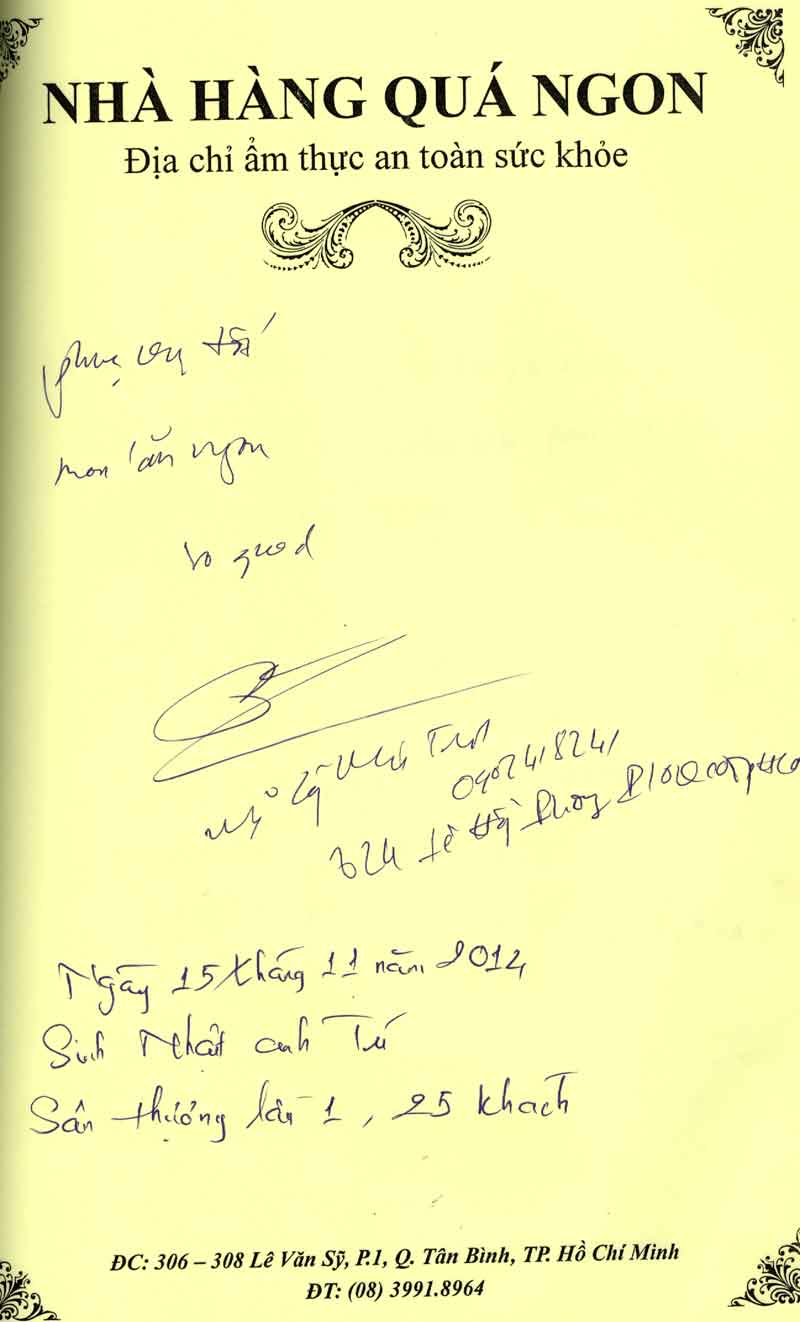 NHÀ HÀNG QUÁ NGON
Địa chỉ ẩm thực an toàn sức khỏe
phục vụ tốt
món ăn ngon
good
0902418241
Lê Hồng Phong P10 Q10
Ngày 15 tháng 11 năm 2014
Sinh Nhật anh Tú
Sân thượng lần 1, 25 khach
ĐC: 306 – 308 Lê Văn Sỹ, P.1, Q. Tân Bình, TP. Hồ Chí Minh
ĐT: (08) 3991.8964